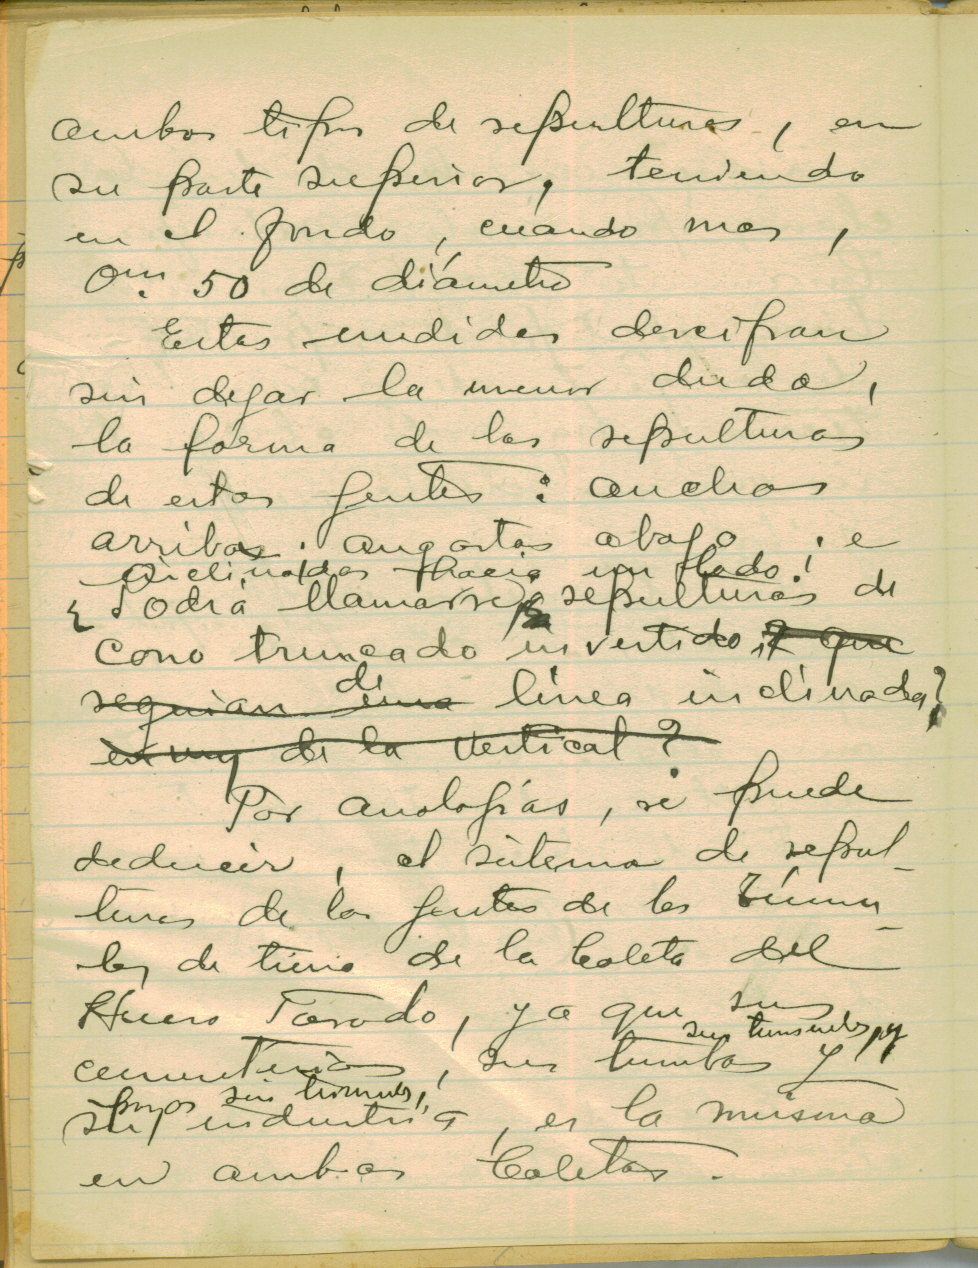 ambos tipos de sepulturas, en
su parte superior, teniendo
en el fondo, cuando mas,
0m. 50 de diámetro
Estas medidas descifran
sin dejar la menor duda,
la forma de las sepulturas
de estas gentes: anchas
arribas. angostas abajo, e
inclinadas hacia un lado!
¿Podrá llamarse sepulturas de
cono truncado invertido, ? que
seguian una de línea inclinada?
en muy de la vertical?
Por analogías, se puede
deducir, el sistema de sepul-
turas de las gentes de los Túmu-
los de tierra de la Caleta del
Huero Parado, ya que sus
sus tumulos, y
cementerios, sus tumbas y
pozos sin tumulos,
su industria, es la misma
en ambas Caletas.